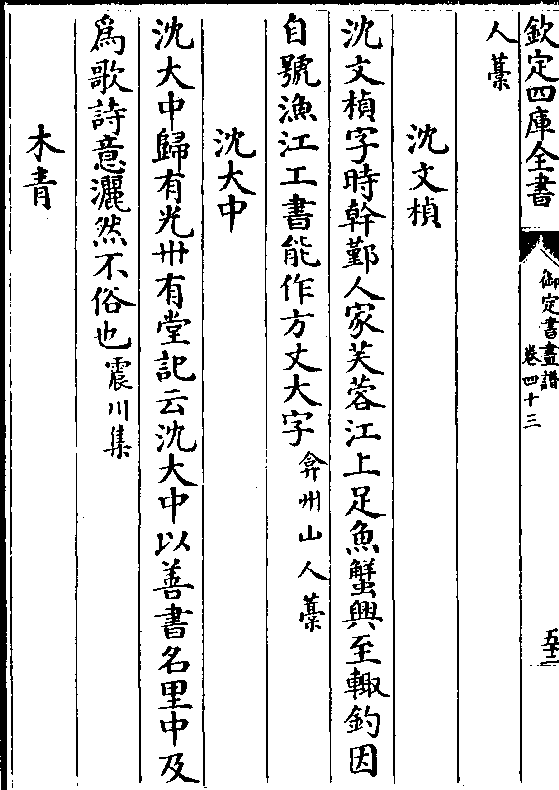 欽定四庫全書
御定書畫譜
卷四十三
五十二
人藁
沈文楨
沈文楨字時幹鄞人家芙蓉江上足魚蟹興至輙釣因
自號漁江工書能作方丈大字弇州山人藁
沈大中
沈大中歸有光卅有堂記云沈大中以善書名里中及
爲歌詩意灑然不俗也震川集
木青